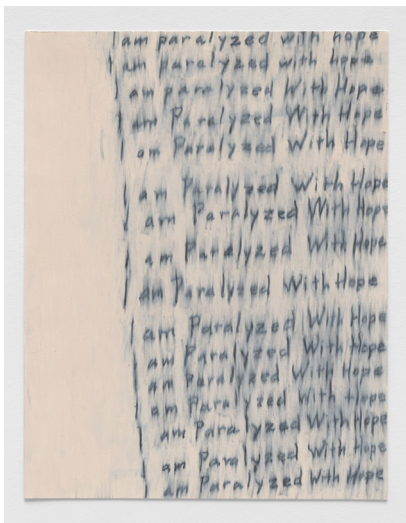 I am paralyzed with hope
I am paralyzed with hope
I am paralyzed with Hope
I am Paralyzed With Hope
I am Paralyzed With Hope
I am Paralyzed With Hope
I am Paralyzed With Hope
I am Paralyzed With Hope
I am Paralyzed With Hope
I am Paralyzed With Hope
I am Paralyzed With Hope
I am paralyzed With Hope
I am Paralyzed with Hope
I am Paralyzed With Hope
I am Paralyzed With Hope
I am Paralyzed With Hope